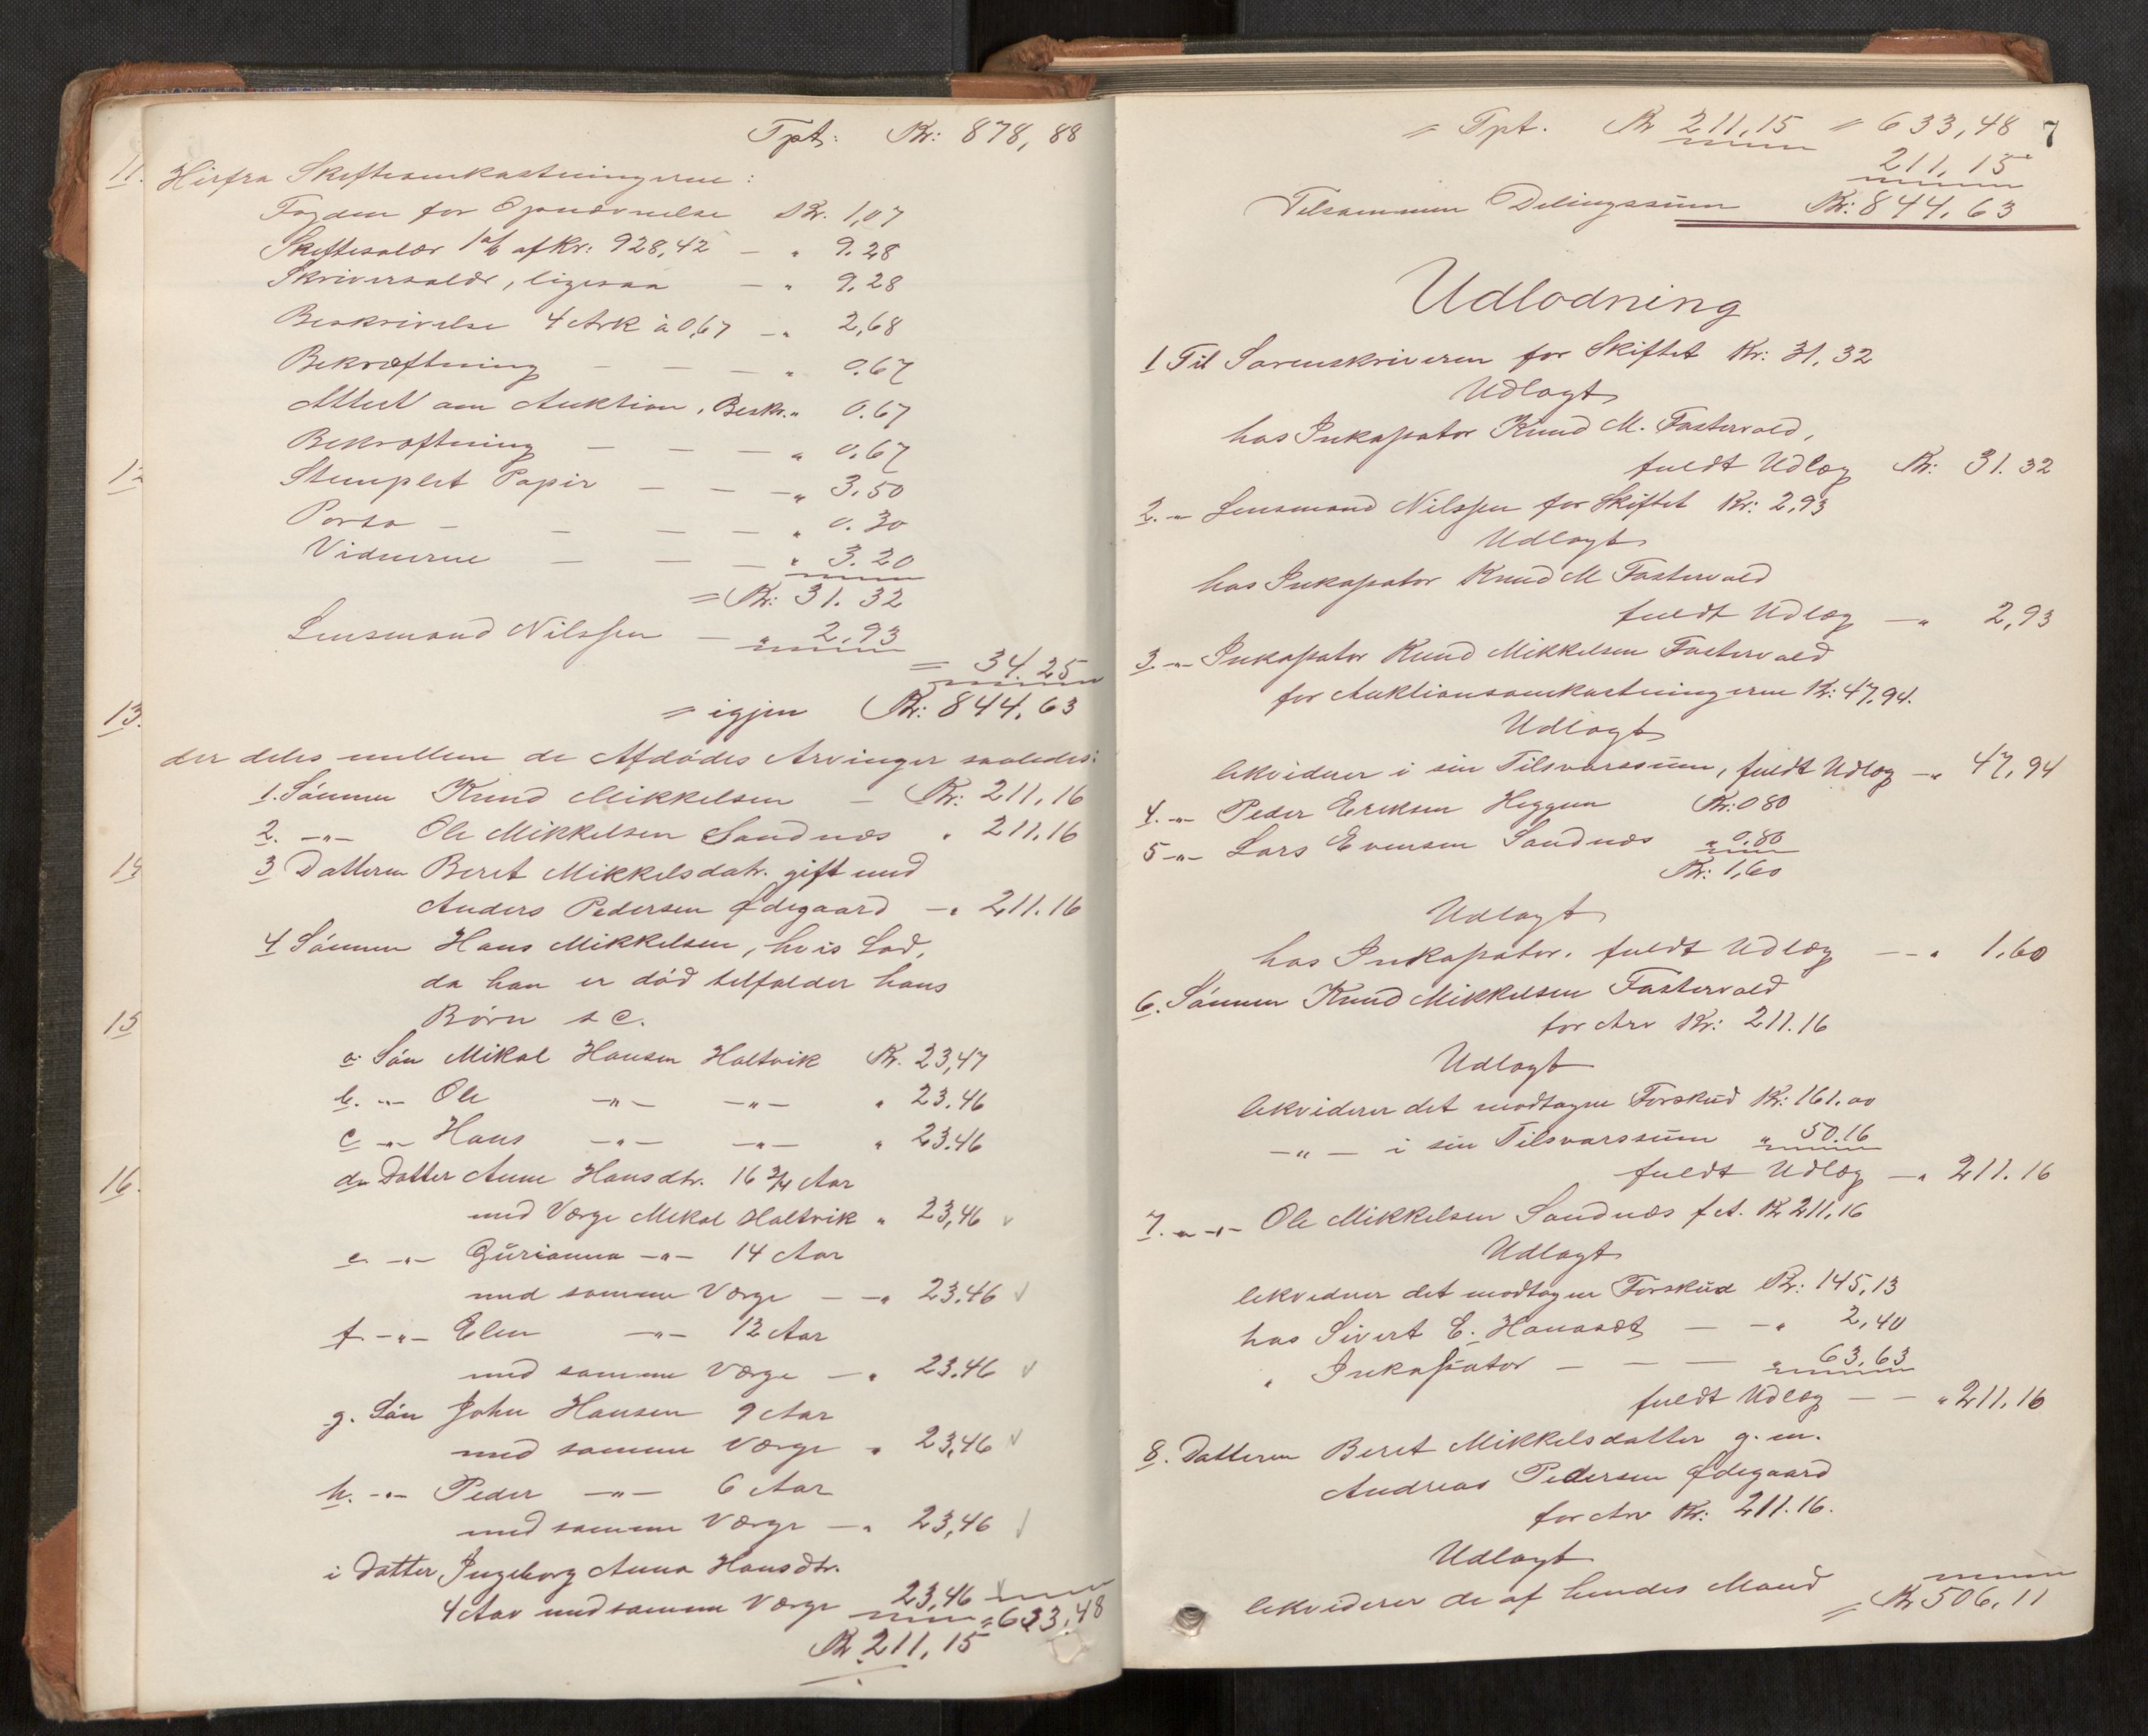 Tpt: Kr: 878,88
11. Herfra Skifteomkostningerne:
Fogden for Opnævnelse Kr. 1,07
Skiftesalær 1% af Kr: 928,42 — " 9.28
Skriversalær, ligesaa — " 9.28
Beskrivelse 4 Ark à 0,67 — " 2,68
Bekræftning — — — " 0.67
Attest om Auktion, Beskr. " 0.67
Bekræftning — — — " 0.67
12 Stemplet Papir — — — " 3.50
Porto — — — — " 0.30
Vidnerne — — — " 3.20
= Kr: 31.32
Lensmand Nilssen — " 2,93
= 34.25
13. = igjen Kr: 844,63
der deles mellem de Afdødes Arvinger saaledes:
1. Sønnen Knud Mikkelsen — Kr: 211,16
2. —"— Ole Mikkelsen Sandnæs " 211.16
14 3 Datteren Beret Mikkelsdatr. gift med
Anders Pedersen Ødegaard — " 211.16
4 Sønnen Hans Mikkelsen, hvis Lod,
da han er død tilfalder hans
15 Børn s c.
a. Søn Mikal Hansen Holtvik Kr. 23,47
b. —"— Ole —"— —"— " 23.46
c —"— Hans —"— —"— " 23.46
16. d. Datter Anne Hansdtr. 16 3/4 Aar
med Værge Mikal Holtvik " 23,46
e —"— Gurianna —"— 14 Aar
med samme Værge — — " 23.46
f —"— Elen —"— 12 Aar
med samme Værge — " 23.46
g. Søn John Hansen 9 Aar
med samme Værge " 23,46
h. —"— Peder —"— 6 Aar
med samme Værge — " 23,46
i Datter Ingeborg Anna Hansdtr.
4 Aar med samme Værge 23,46
= 633,48
Kr 211,15
7
= Tpt. Kr 211,15 = 633,48
211,15
Tilsammen Delingssum Kr: 844,63
Udlodning
1 Til Sorenskriveren for Skiftet Kr: 31,32
Udlagt
hos Inkassator Knud M. Fastervold,
fuldt Udlæg Kr: 31.32
2. —"— Lensmand Nilssen for Skiftet Kr: 2,93
Udlagt
hos Inkassator Knud M Fastervold
fuldt Udlæg — " 2,93
3 —"— Inkassator Knud Mikkelsen Fastervold
for Auktionsomkostningerne Kr: 47,94.
Udlagt
likviderer i sin Tilsvarssum, fuldt Udlæg — " 47,94
4. —"— Peder Eriksen Heggem Kr: 0 80
5 —"— Lars Evensen Sandnæs " 0.80
Kr: 1,60
Udlagt
hos Inkassator. fuldt Udlæg — — " 1.60
6. Sønnen Knud Mikkelsen Fastervold
for Arv Kr: 211.16
Udlagt
likviderer det modtagne Forskud Kr: 161.00
—"— i sin Tilsvarssum " 50.16
fuldt Udlæg — " 211.16
7. —"— Ole Mikkelsen Sandnæs f A. Kr 211,16
Udlagt
likviderer det modtagne Forskud Kr: 145,13
hos Sivert E. — — " 2,40
" Inkassator — — — " 63,63
fuldt Udlæg — — " 211.16
8. Datteren Beret Mikkelsdatter g. m.
Andreas Pedersen Ødegaard
for Arv Kr: 211.16.
Udlagt
likviderer de af hendes Mand
= Kr 506,11